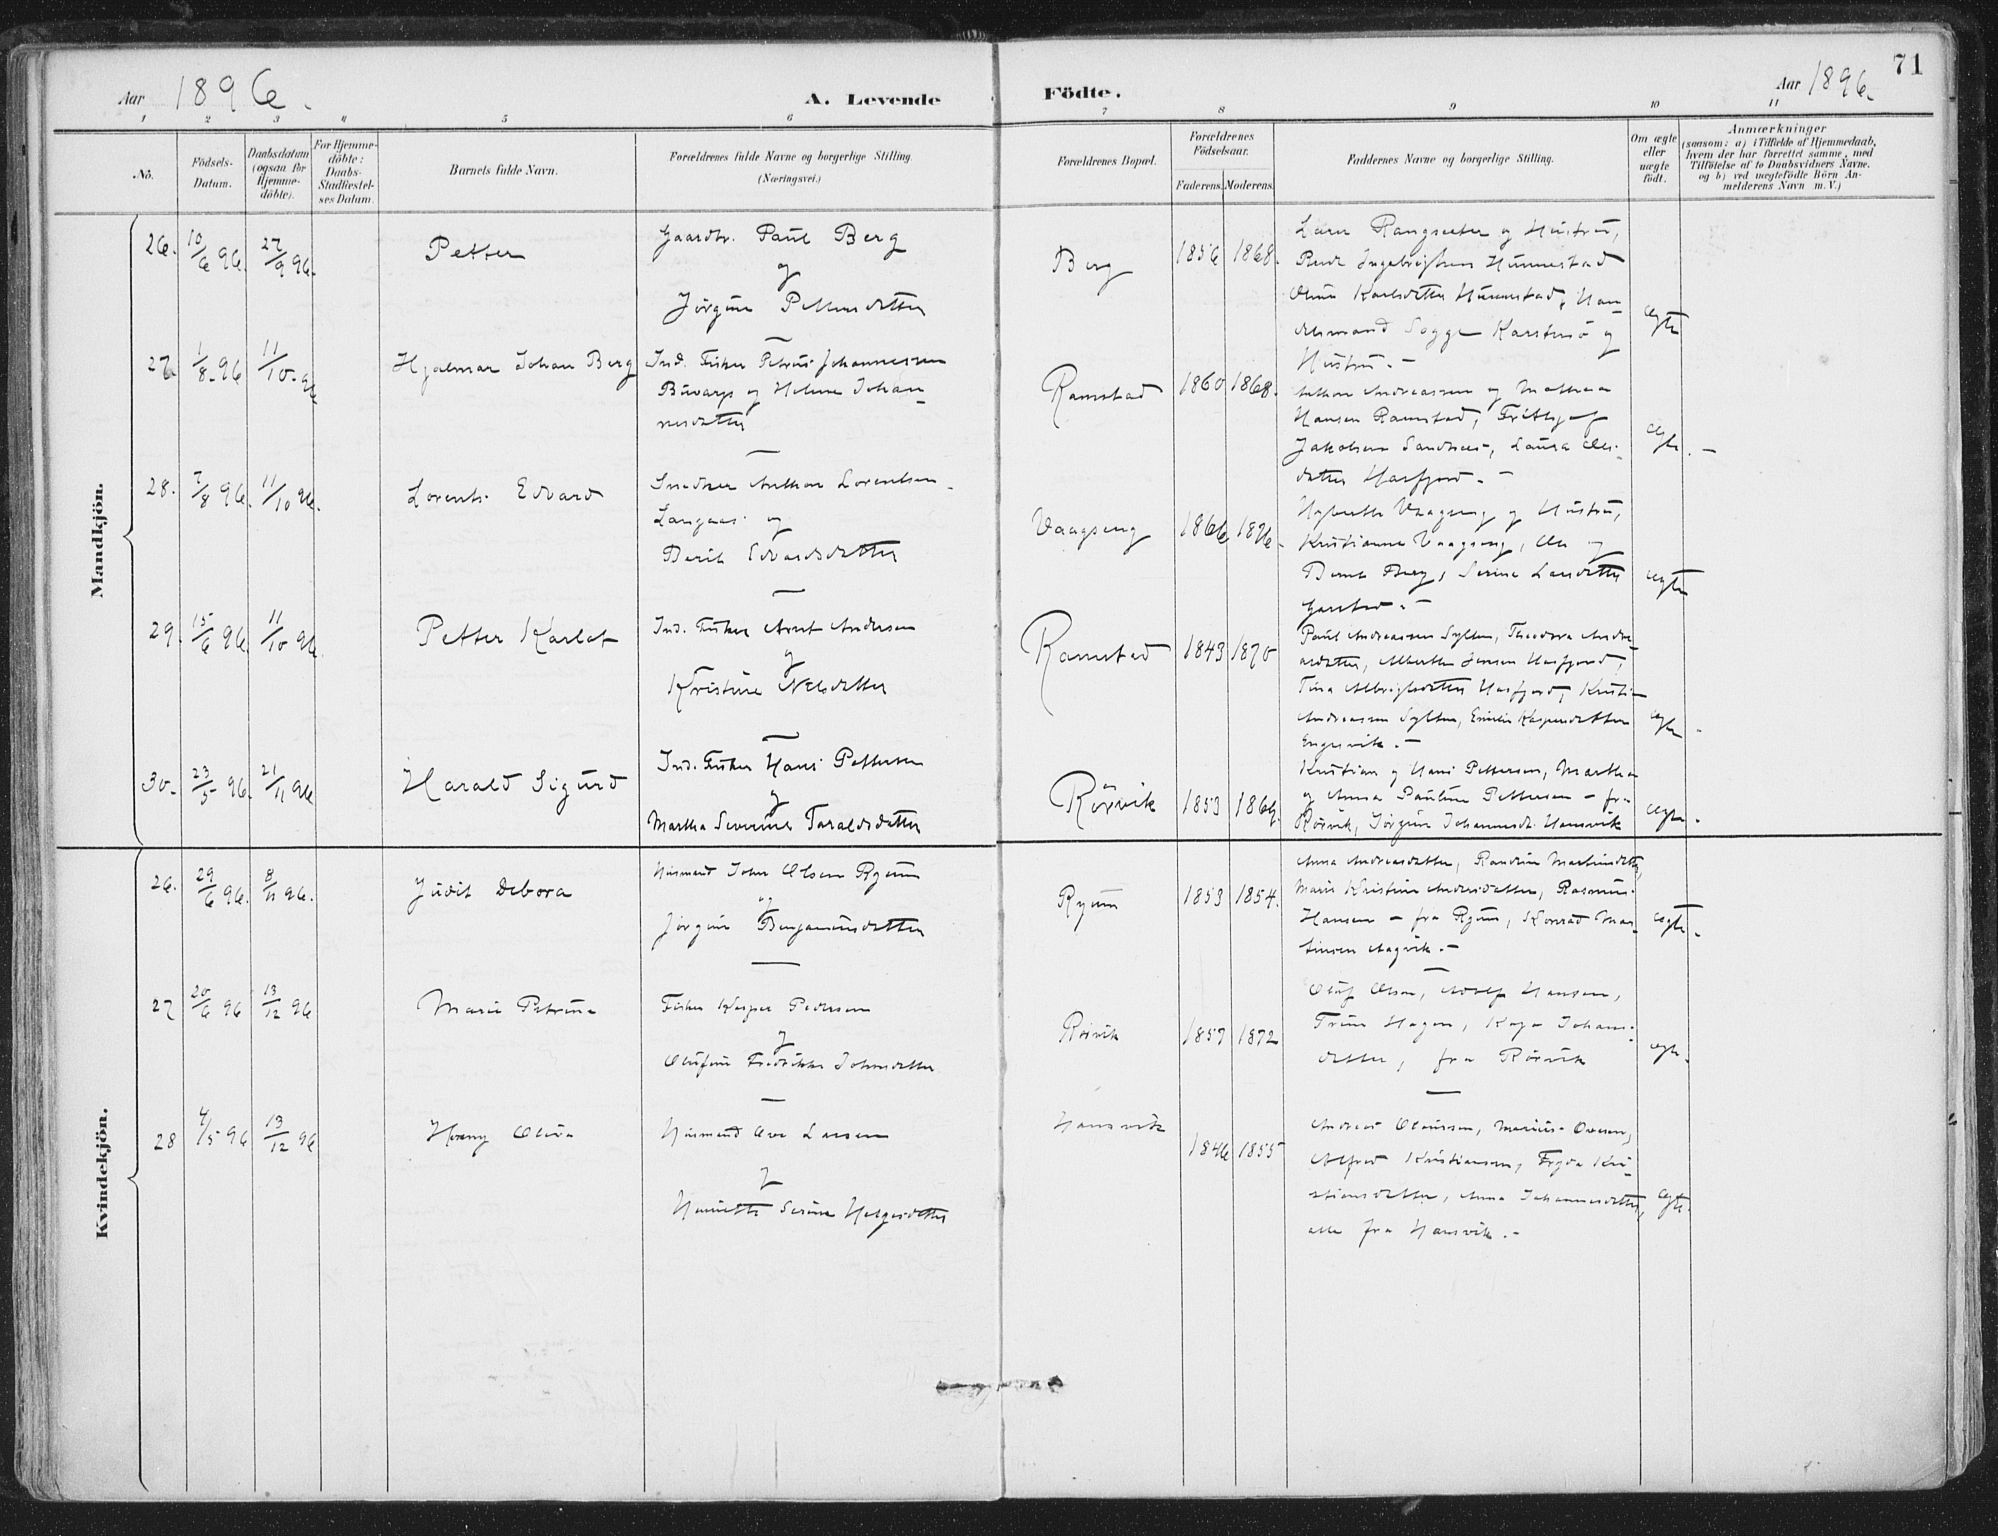 71
Aar 1896.
A. Levende Födte.
Aar 1896.
1 2 3 4 5 6 7 8 9 10 11
No.
Födsels-
Datum.
Daabsdatum
(ogsaa for
Hjemme-
döbte).
For Hjemme-
döbte:
Daabs-
Stadfæstel-
ses Datum.
Barnets fulde Navn.
Forældrenes fulde Navne og borgerlige Stilling.
(Næringsvei.)
Forældrenes Bopæl.
Forældrenes
Födselsaar.
Faderens. Moderens.
Faddernes Navne og borgerlige Stilling.
Om ægte
eller
uægte
födt.
Anmærkninger
(saasom: a) i Tilfælde af Hjemmedaab,
hvem der har forrettet samme, med
Tilföielse af to Daabsvidners Navne.
og b) ved uægtefödte Börn An-
melderens Navn m. V.)
Mandkjön.
26. 10/6 96. 27/9 96.
Petter
Gaardbr. Paul Berg
og
Jörgine Pettersdatter
Berg
1856 1868.
Lærer og Hustru,
Ingebrigtsen Hunnestad
Karlsdatter Hunnestad, Han-
delsmand Sogge Karstensö og
Hustru. -
ægte
27. 1/8 96 11/10 96.
Hjalmar Johan Berg
Ind. Fisker Petrus Johannessen
og Helene Johan-
nesdatter
Ramstad
1860 1868.
Anton Andreassen og Mathea
Hansen Ramstad, Fridtjof
Jakobsen Laura Ols-
datter Hasfjord. -
ægte. -
28. 7/8 96. 11/10 96.
Lorents Edvard
Snedker Anthon Lorentsen
Langaas og
Berit Edvardsdatter
Vaagseng
1866
Vaagseng og Hustru,
Kristianne Vaagseng, Ole og
Bernt Berg, Serine Larsdatter
ægte
29. 15/6 96. 11/10 96.
Petter Karlot
Ind. Fisker Arnt Andersen
og
Kristine Nelsdatter
Ramstad
1843 1870
Paul Andreassen Sylten, Theodora Andre-
asdatter, Albertha Jensen Hasfjord,
Tina Albrigtsdatter Hasfjord, Kristian
Andreassen Sylten, Emilie Kaspersdatter
Engesvik. -
ægte -
30. 23/5 96. 21/11 96
Harald Sigurd
Ind. Fisker Hans Pettersen
og
Martha Severine Taraldsdatter
Rörvik
1853 1864.
Kristian og Hans Pettersen, Martha
og Anna Pauline Pettersen - fra
Rörvik, Jörgine Johannesdt. Hansvik
ægte.
Kvindekjön.
26. 29/6 96. 8/11 96.
Judit Debora
Husmand John Olsen Ryum
og
Jörgine Benjaminsdatter
Ryum
1853 1854.
Anna Andreasdatter, Randine Martinsdatter,
Marie Kristine Andersdatter, Rasmus
Hansen - fra Ryum, Konrad Mar-
tinsen Aagvik. -
ægte.
27 20/6 96 13/12 96
Marie Petrine
Fisker Kasper Pedersen
og
Olufine Fredrikke Johnsdatter
Rörvik
1857 1872
Oluf Olsen, Adolf Hansen,
Trine Hagen, Kaja Johans-
datter, fra Rörvik
ægte.
28 4/5 96 13/12 96
Olivie
Husmand Ove Larsen
og
Henriette Serine Helgesdatter
Hansvik
1846 1855
Andreas Olaussen, Marius Ovesen,
Alfred Kristiansen, Frida Kri-
stiansdatter, Anna Johannesdatter,
alle fra Hansvik. -
ægte.